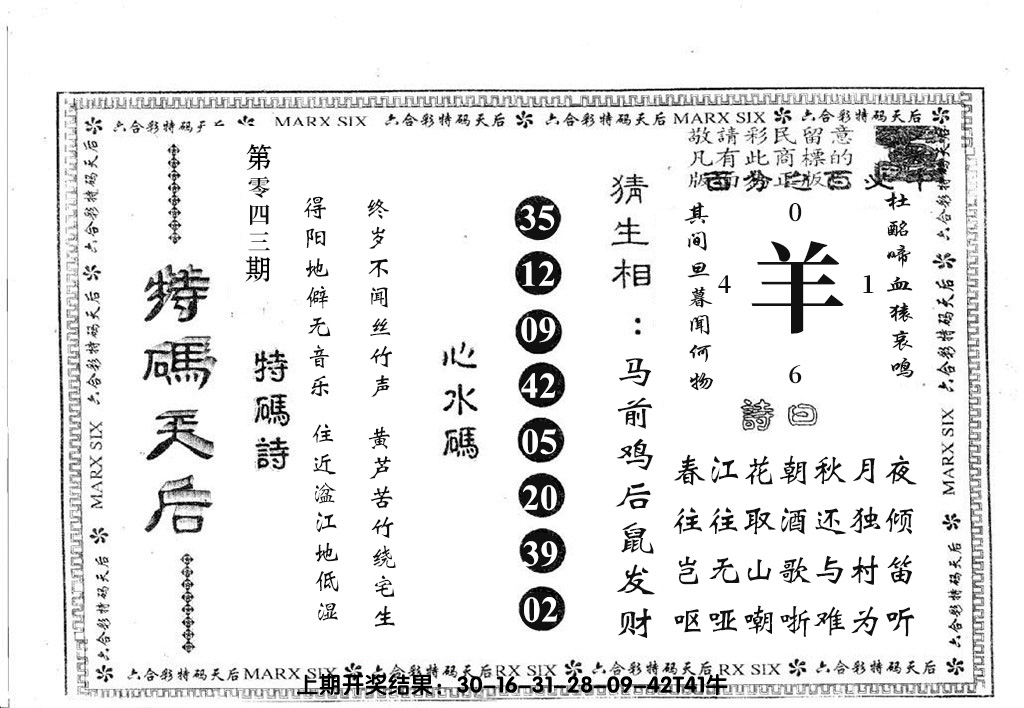 六合彩特码天后 MARX SIX 六合彩特码天后 六合彩特码天后 MARX SIX 六合彩特码天后
敬請彩民留意
凡有此商標的
特碼天后
第零四三期
特碼詩
得阳地僻无音乐 住近湓江地低湿
终岁不闻丝竹声 黄芦苦竹绕宅生
心水碼
35
12
09
42
05
20
39
02
猜生相：马前鸡后鼠发财
其间旦暮闻何物
杜酩啼血猿哀鸣
0
4 羊 1
6
詩曰
春江花朝秋月夜
往往取酒还独倾
岂无山歌与村笛
呕哑嘲哳难为听
六合彩特码天后 MARX SIX 六合彩特码天后
六合彩特码天后 MARX SIX 六合彩特码天后
六合彩特码天后MARX SIX 六合彩特码天后RX SIX 六合彩特码天后RX SIX 六合彩特码天后
上期开奖结果：30-16-31-28-09-42T41牛